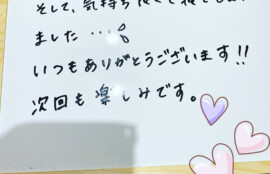 そして、気持ち良くて寝てしまい
ました…
いつもありがとうございます!!
次回も楽しみです。